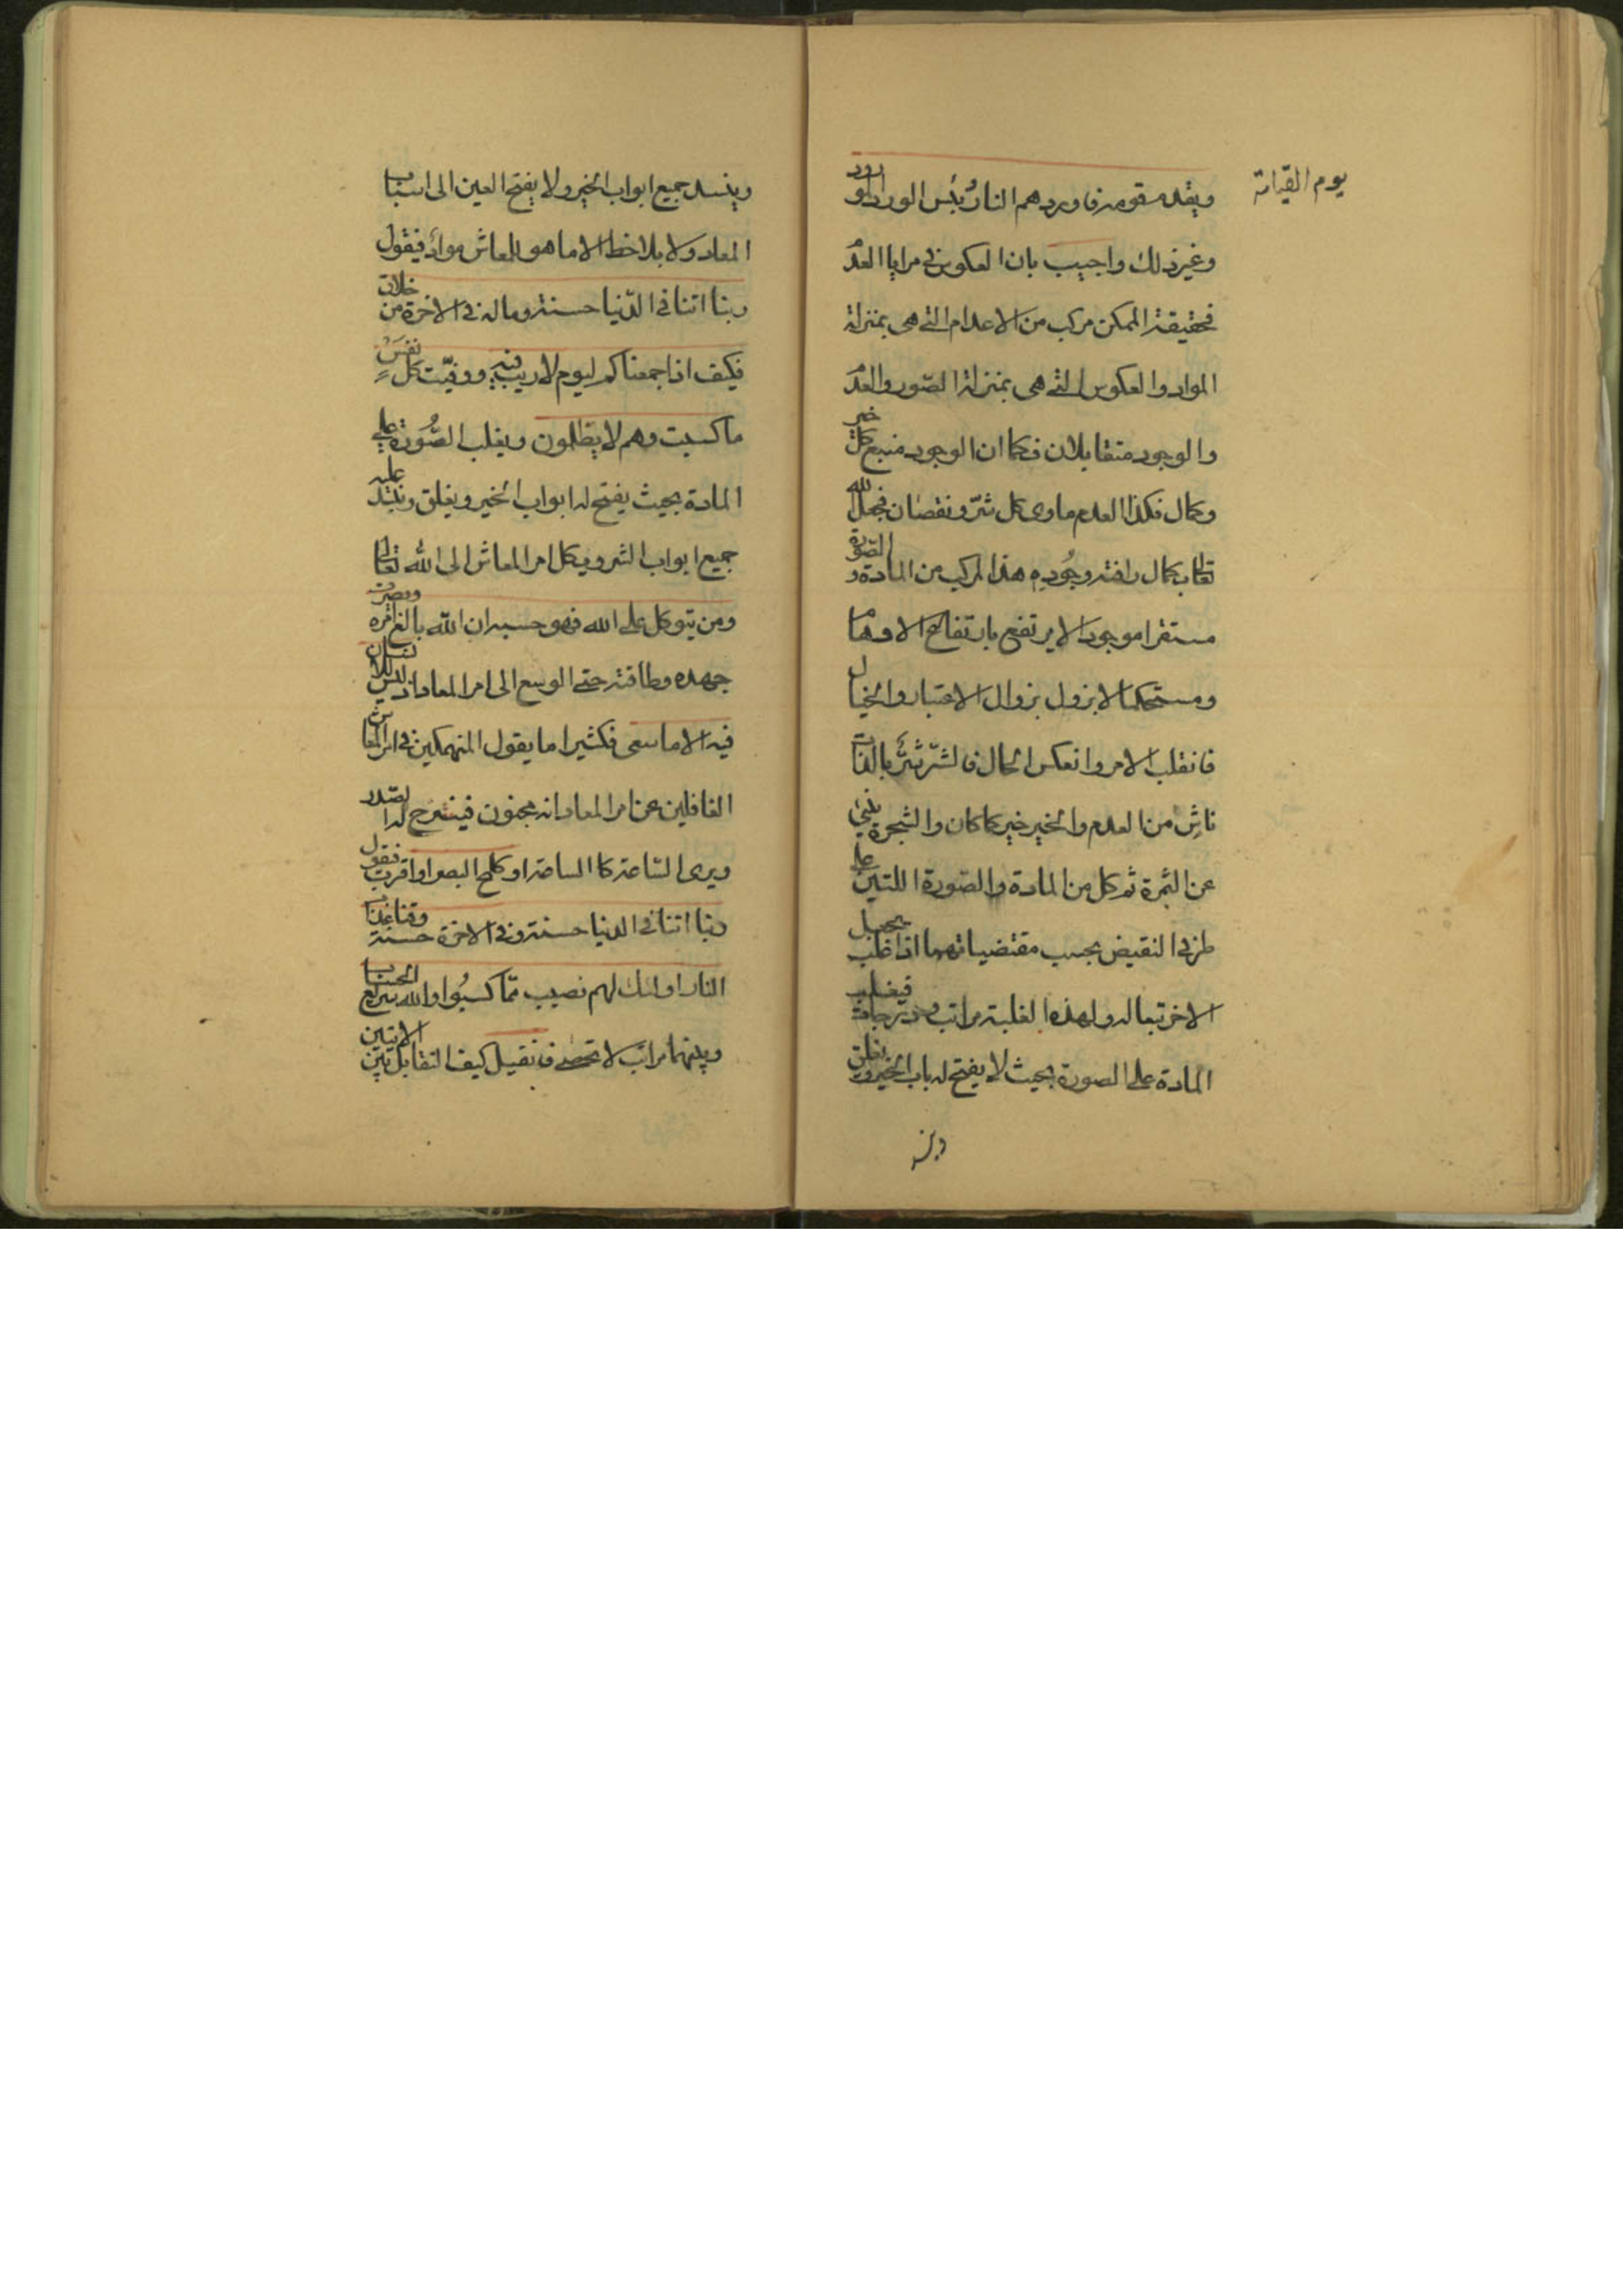 يوم القيامة
ويقدم قومه فاوردهم النار وبئس الورد المورود
وغير ذلك واجيب بان العكوس في مرايا العدم
فحقيقة الممكن مركب من الاعدام التي هي بمنزلة
المواد والعكوس التي هي بمنزلة الصور والعدم
والوجود متقابلان فكما ان الوجود منبع كل خير
وكمال فكذا العدم ماوى كل شر ونقصان فجعل الله
تعالى بكمال رافته وجوده هذا المركب من المادة والصورة
مستقرا موجودا لا يرتفع بارتفاع الاوهام
ومستحكما لا يزول بزوال الاعتبار والخيال
فانقلب الامر وانعكس الحال فالشر شر بالذات
ناش من العدم والخير خير كما كان والشجرة ينبئ
عن الثمرة ثم كل من المادة والصورة اللتين على
طرفي النقيض بحسب مقتضياتهما اذا غلب يجعل
الاخر تبعا له ولهذه الغلبة مراتب ودرجات فيغلب
المادة على الصورة بحيث لا يفتح له باب الخير ويغلق
وينسد
وينسد جميع ابواب الخير ولا يفتح العين الى اسباب
المعاد ولا يلاخط الا ما هو للمعاش مواد فيقول
ربنا اتنا في الدنيا حسنة وما له في الاخرة من خلاق
فكيف اذا جمعناكم ليوم لا ريب فيه ووفيت كل نفس
ما كسبت وهم لا يظلمون ويغلب الصورة على
المادة بحيث يفتح له ابواب الخير ويغلق وينسد عليه
جميع ابواب الشر ويكل امر المعاش الى الله تعالى
ومن يتوكل على الله فهو حسبه ان الله بالغ امره ويصرف
جهده وطاقته حتى الوسع الى امر المعاد اذ ليس للانسان
فيه الا ما سعى فكثيرا ما يقول المنهمكين في امر المعاش
الغافلين عن امر المعاد انه مجنون فينشرح له الصدر
ويرى الساعة كالساعة او كلمح البصر او اقرب فيقول
ربنا اتنا في الدنيا حسنة وفي الاخرة حسنة وقنا عذاب
النار اولئك لهم نصيب مما كسبوا والله سريع الحساب
وبينهما مراتب لا تحصى فان قيل كيف التقابل بين الايتين